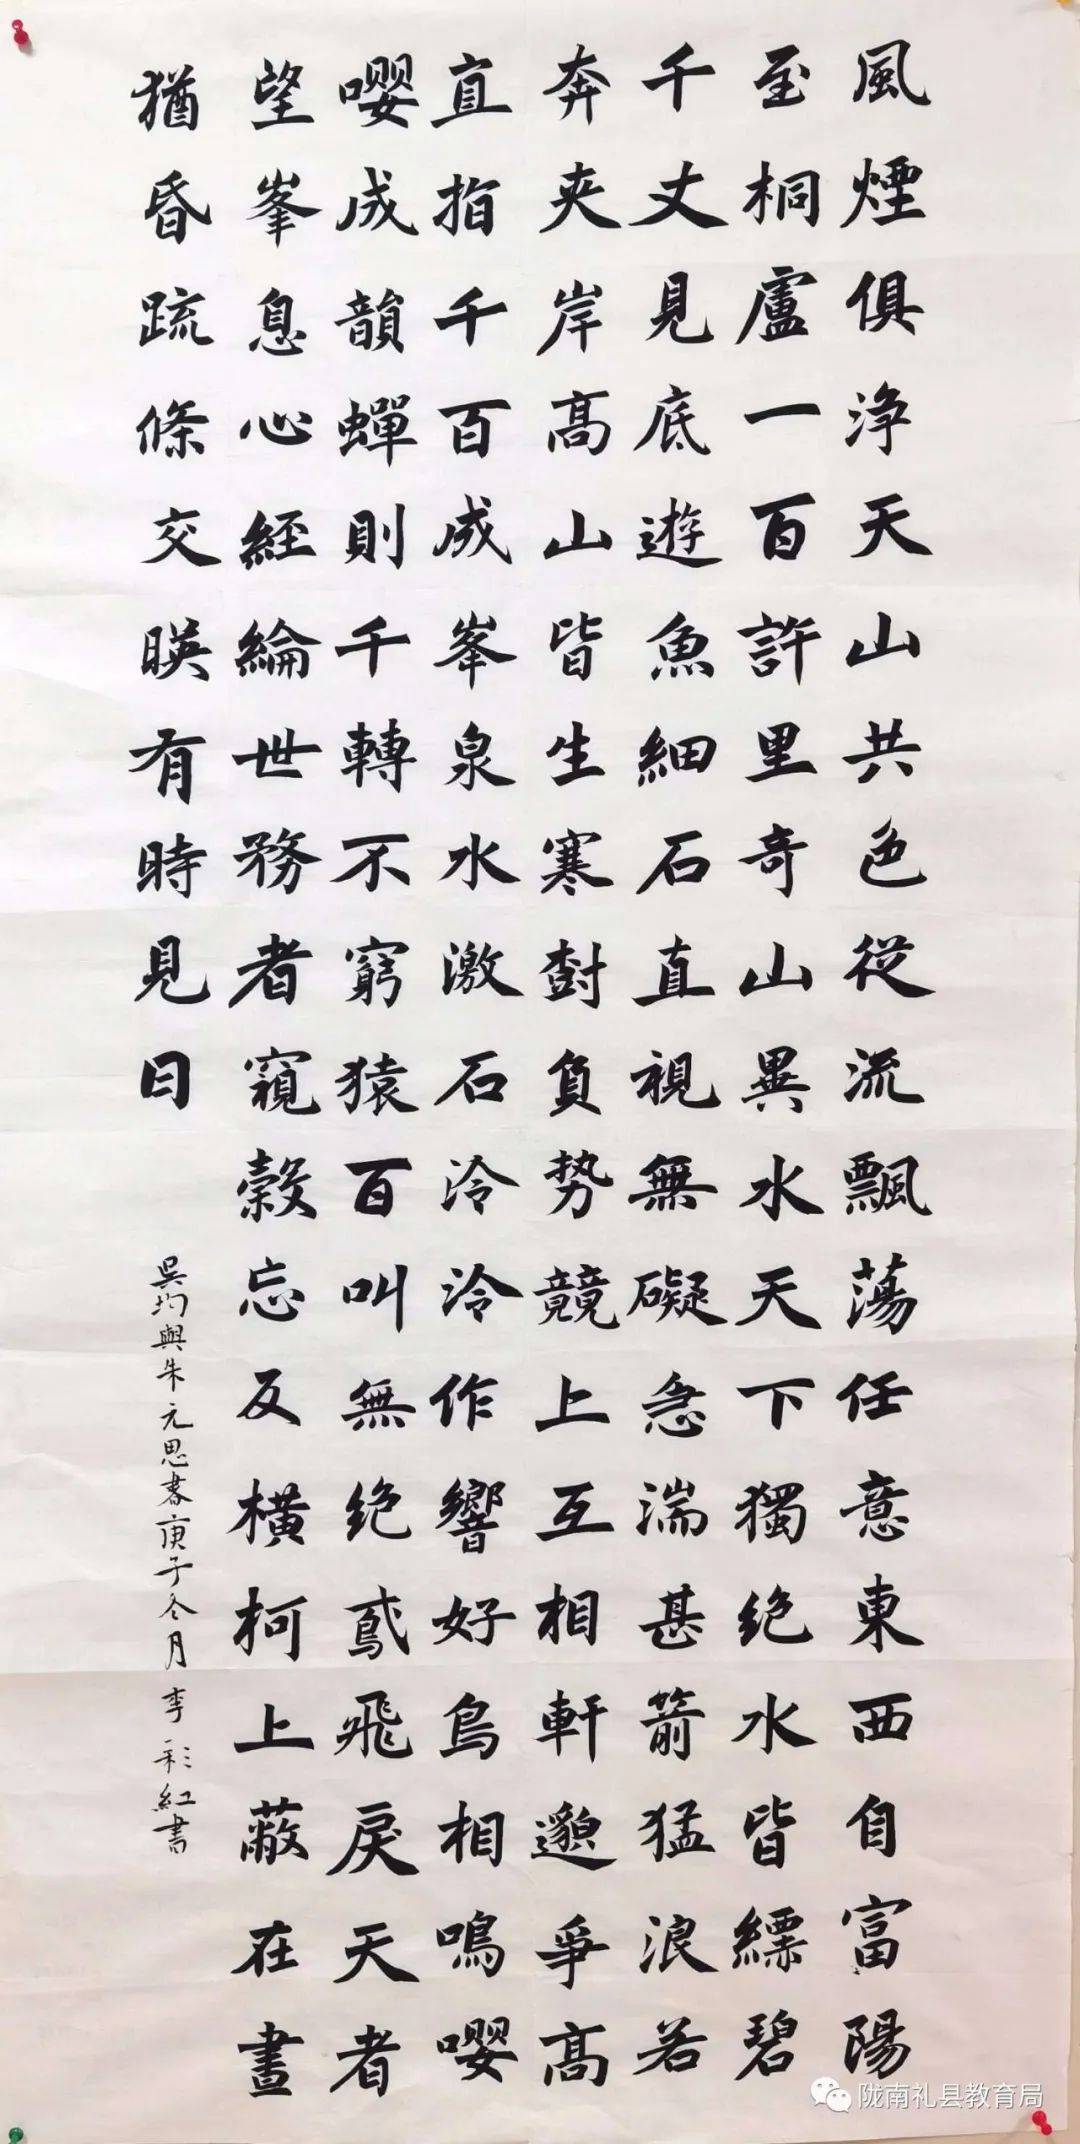 風煙俱浄天山共色從流飄蕩任意東西自富陽
至桐盧一百許里奇山異水天下獨绝水皆縹碧
千丈見底遊魚細石直視無礙急湍甚箭猛浪若
奔夾岸高山皆生寒樹負势競上互相軒邈爭高
直指千百成峯泉水激石泠泠作響好鳥相鳴嚶
嚶成韻蟬則千轉不窮猿百叫無绝鳶飛戾天者
望峯息心經綸世務者窺穀忘反橫柯上蔽在晝
猶昏疏條交暎有時見日
吳均與朱元思書庚子冬月李彩紅書
陇南礼县教育局